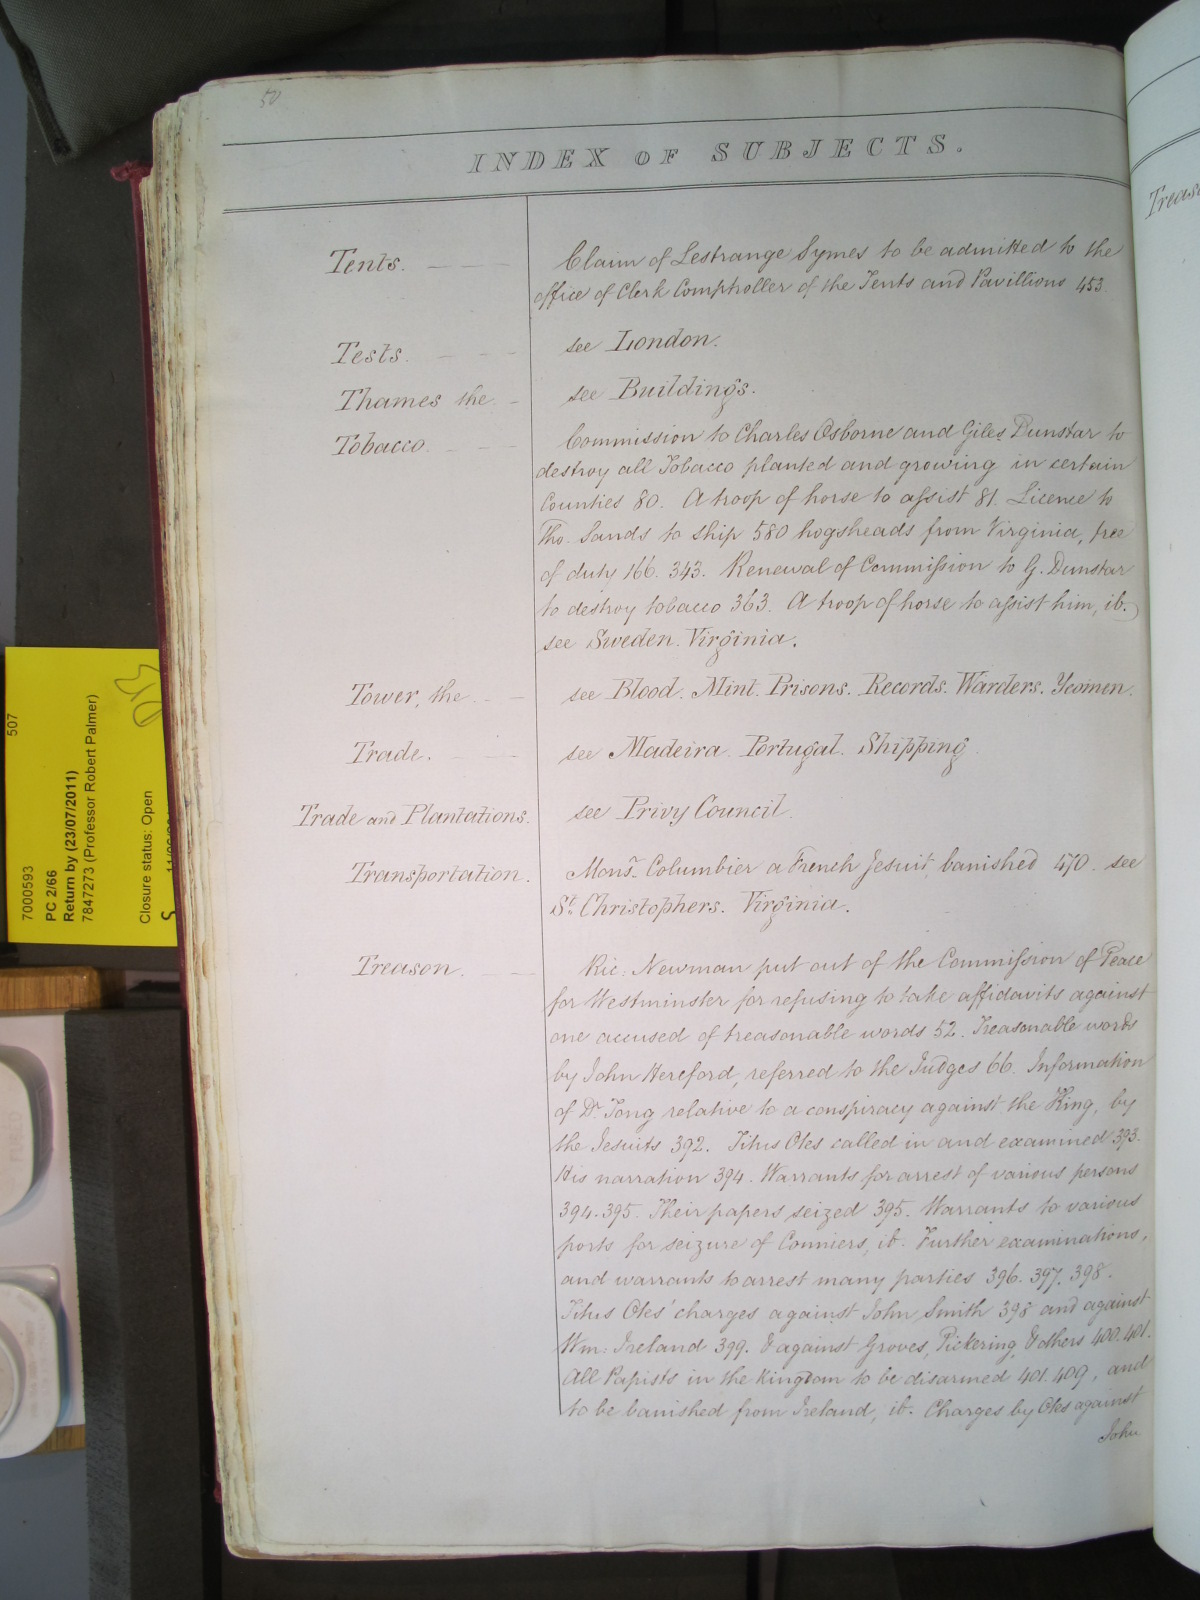 50
INDEX OF SUBJECTS.
Treas
Tents.
Claim of Lestrange Symes to be admitted to the
office of Clerk Comptroller of the Tents and Pavillions 453
Tests.
see London.
Thames the
see Buildings.
Tobacco
Commission to Charles Osborne and Giles Dunstar to
destroy all Tobacco planted and growing in certain
Counties 80. A troop of horse to assist 81. Licence to
Tho. Sands to ship 580 hogsheads from Virginia, free
of duty 166. 343. Renewal of Commission to G. Dunstar
to destroy tobacco 363. A troop of horse to assist him, ib.
see Sweden. Virginia.
Tower, the
see Blood. Mint. Prisons. Records. Warders. Yeomen.
Trade.
see Madeira. Portugal. Shipping
Trade and Plantations.
see Privy Council.
Transportation.
Monsr. Columbier a French Jesuit, banished 470. see
St. Christophers. Virginia.
Treason.
Ric: Newman put out of the Commission of Peace
for Westminster for refusing to take affidavits against
one accused of treasonable words 52. Treasonable words
by John Hereford, referred to the Judges 66. Information
of Dr. Tong relative to a conspiracy against the King, by
the Jesuits 392. Titus Otes called in and examined 393.
His narration 394. Warrants for arrest of various persons
394. 395. Their papers seized 395. Warrants to various
ports for seizure of Conniers, ib. Further examinations,
and warrants to arrest many parties 396. 397. 398.
Titus Otes' charges against John Smith 398 and against
Wm: Ireland 399. & against Groves, Pickering, & others 400. 401.
All Papists in the Kingdom to be disarmed 401. 409, and
to be banished from Ireland, ib. Charges by Otes against
John
507
7000593
PC 2/66
Return by (23/07/2011)
7847273 (Professor Robert Palmer)
Closure status: Open